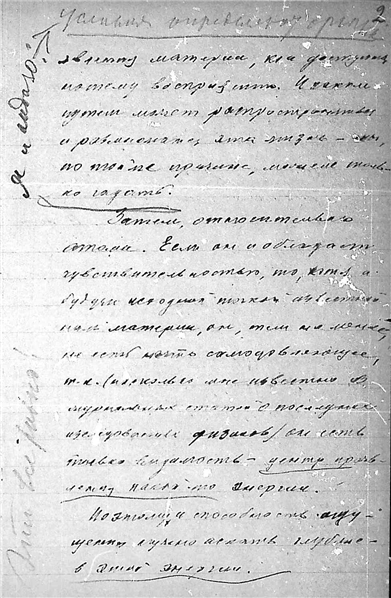 2
Условия определяют
явлений материи, как доступной
нашему восприятию. И каким
путем может распространяться
и размножаться эта жизнь - мы,
по той же причине, можем толь-
ко гадать.
Затем, относительно
атома. Если он и обладает
чувствительностью, то, хотя и
будучи исходной точкой известной
нам материи, он, тем не менее,
не есть нечто самодовлеющее,
т.к. (насколько мне известно из
журнальных статей о последних
исследованиях физиков) он есть
только видимость - центр прояв-
ления какой то энергии.
Поэтому и способность ощу-
щения нужно искать глубже -
в этой энергии.
Я и гадаю!
Это все равно!